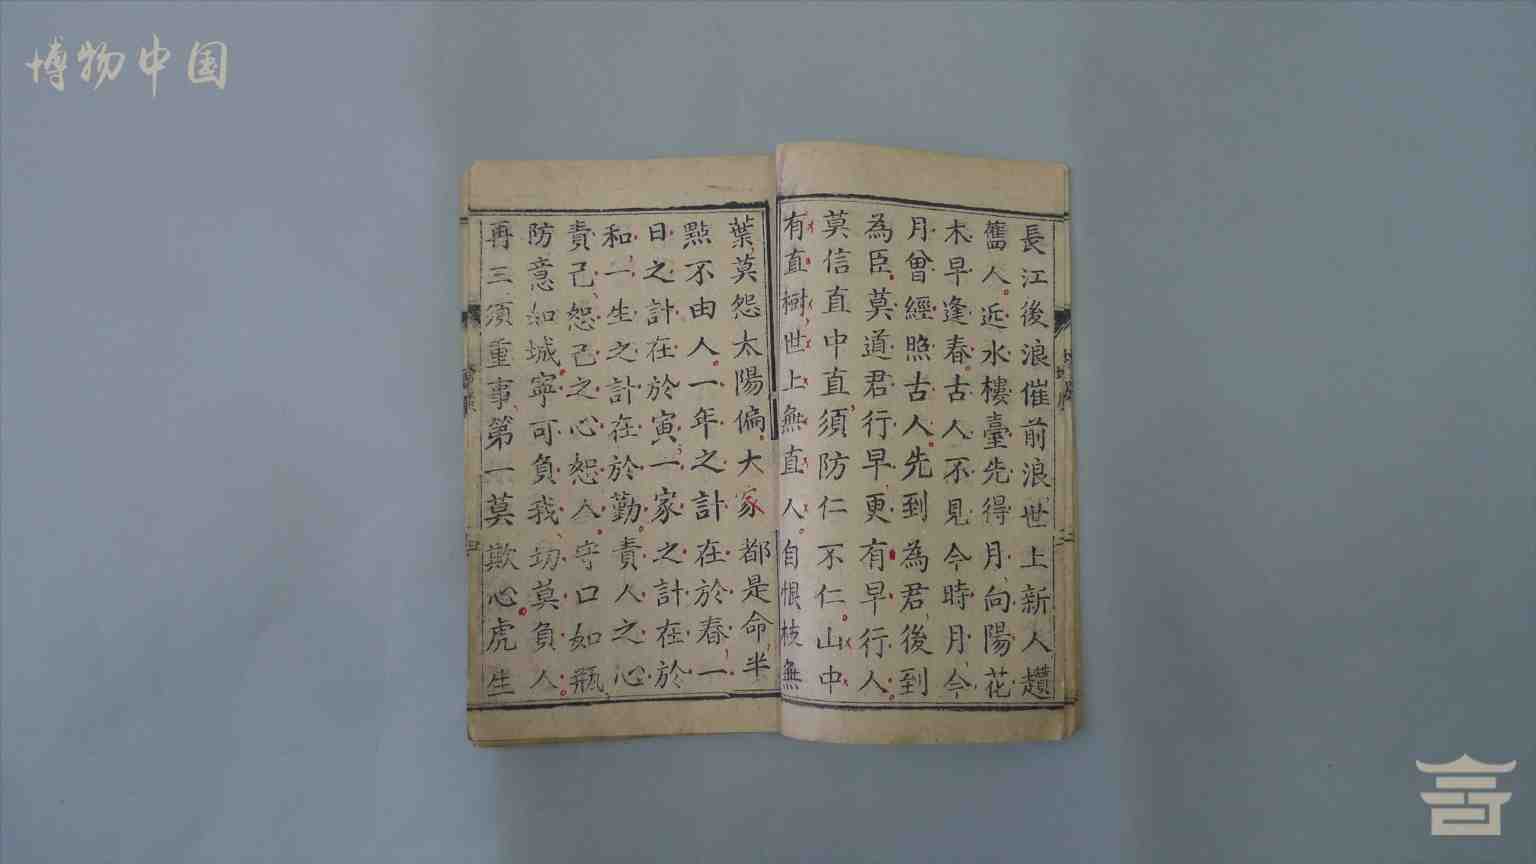 博物中国
長江後浪催前浪世上新人趲
舊人近水樓臺先得月向陽花
木早逢春古人不見今時月今
月曾經照古人先到為君後到
為臣莫道君行早更有早行人
莫信直中直須防仁不仁山中
有直樹世上無直人自恨枝無
葉莫怨太陽偏大家都是命半
點不由人一年之計在於春一
日之計在於寅一家之計在於
和一生之計在於勤責人之心
責己恕己之心恕人守口如瓶
防意如城寧可負我切莫負人
再三須重事第一莫欺心虎生